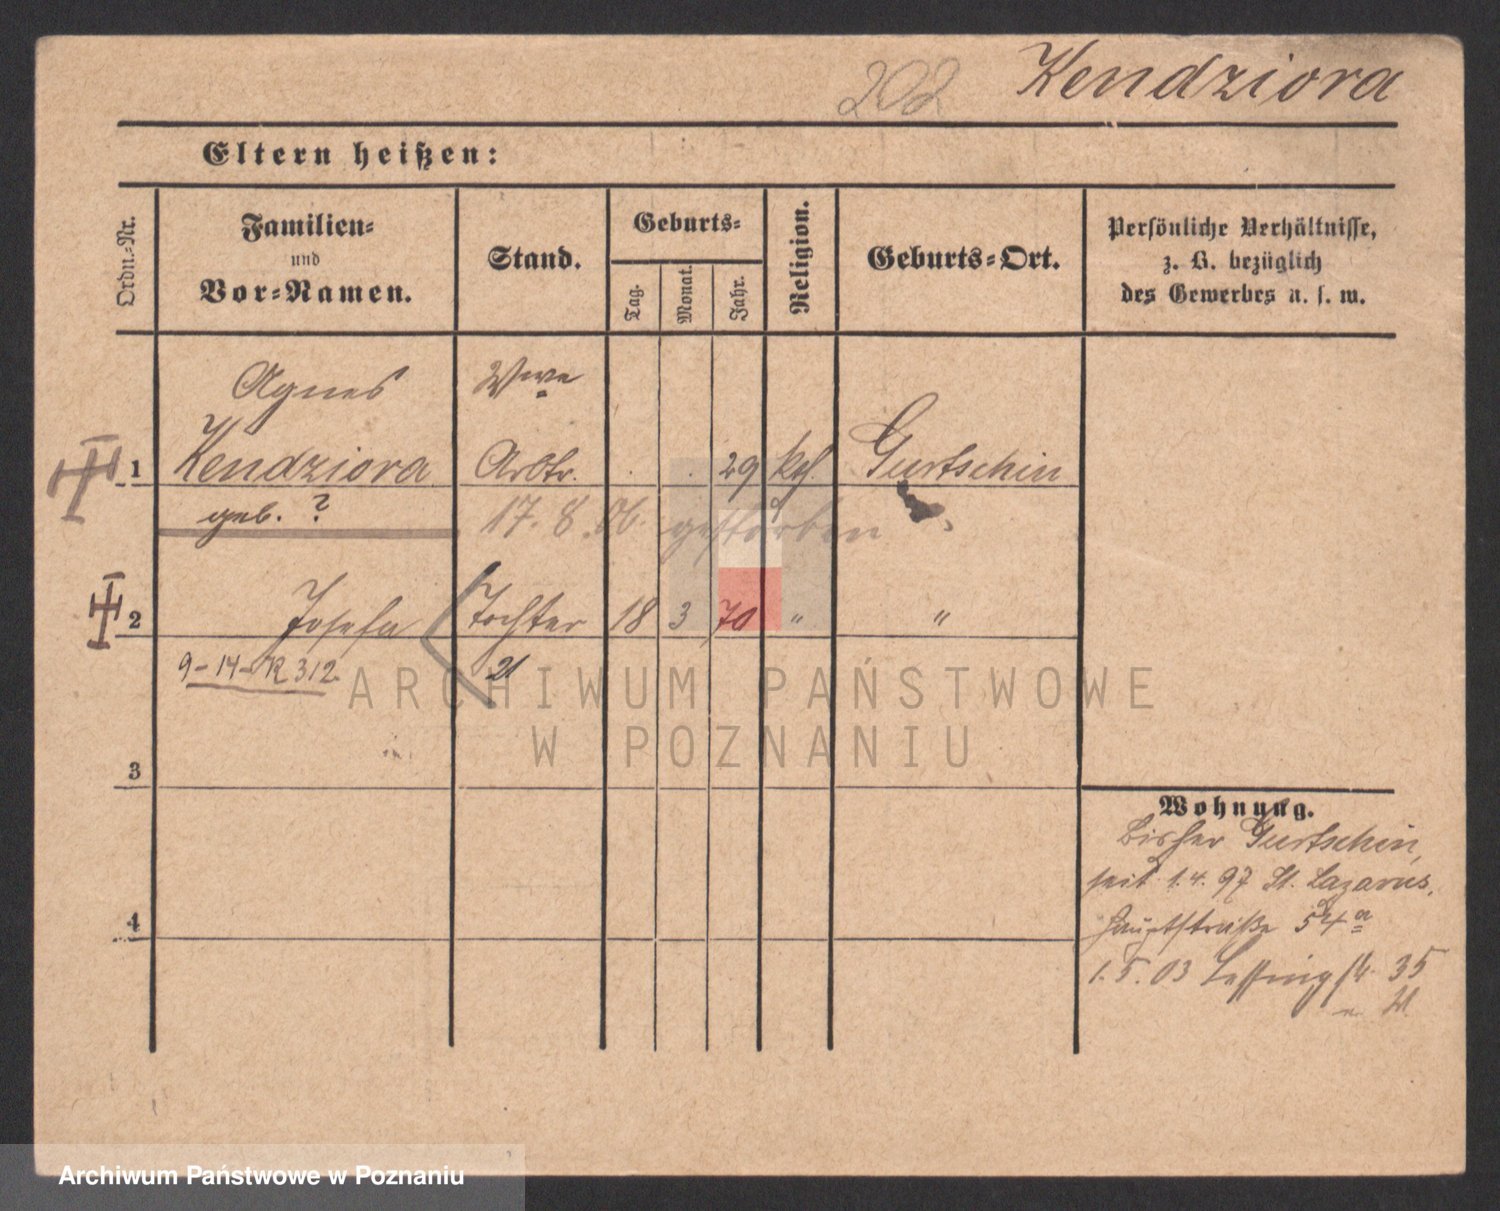 202 Kendziora
Eltern heißen:
Ordn.-Nr.
Familien-
und
Vor-Namen.
Stand.
Geburts-
Tag.
Monat.
Jahr.
Religion.
Geburts-Ort.
Persönliche Verhältnisse,
z. B. bezüglich
des Gewerbes u. s. w.
Agnes Wwe
1 Kendziora Arbtr. . . 29 kth. Gurtschin
geb. ? 17. 8. 06. gestorben
2 Josefa Tochter 18 3 70 " "
9-14-K 312 21
ARCHIWUM PAŃSTWOWE
W POZNANIU
3
4
Wohnung.
bisher Gurtschin,
seit 1.4.97 St. Lazarus,
Hauptstraße 54a
1.5.03 Lessingstr. 35
Archiwum Państwowe w Poznaniu